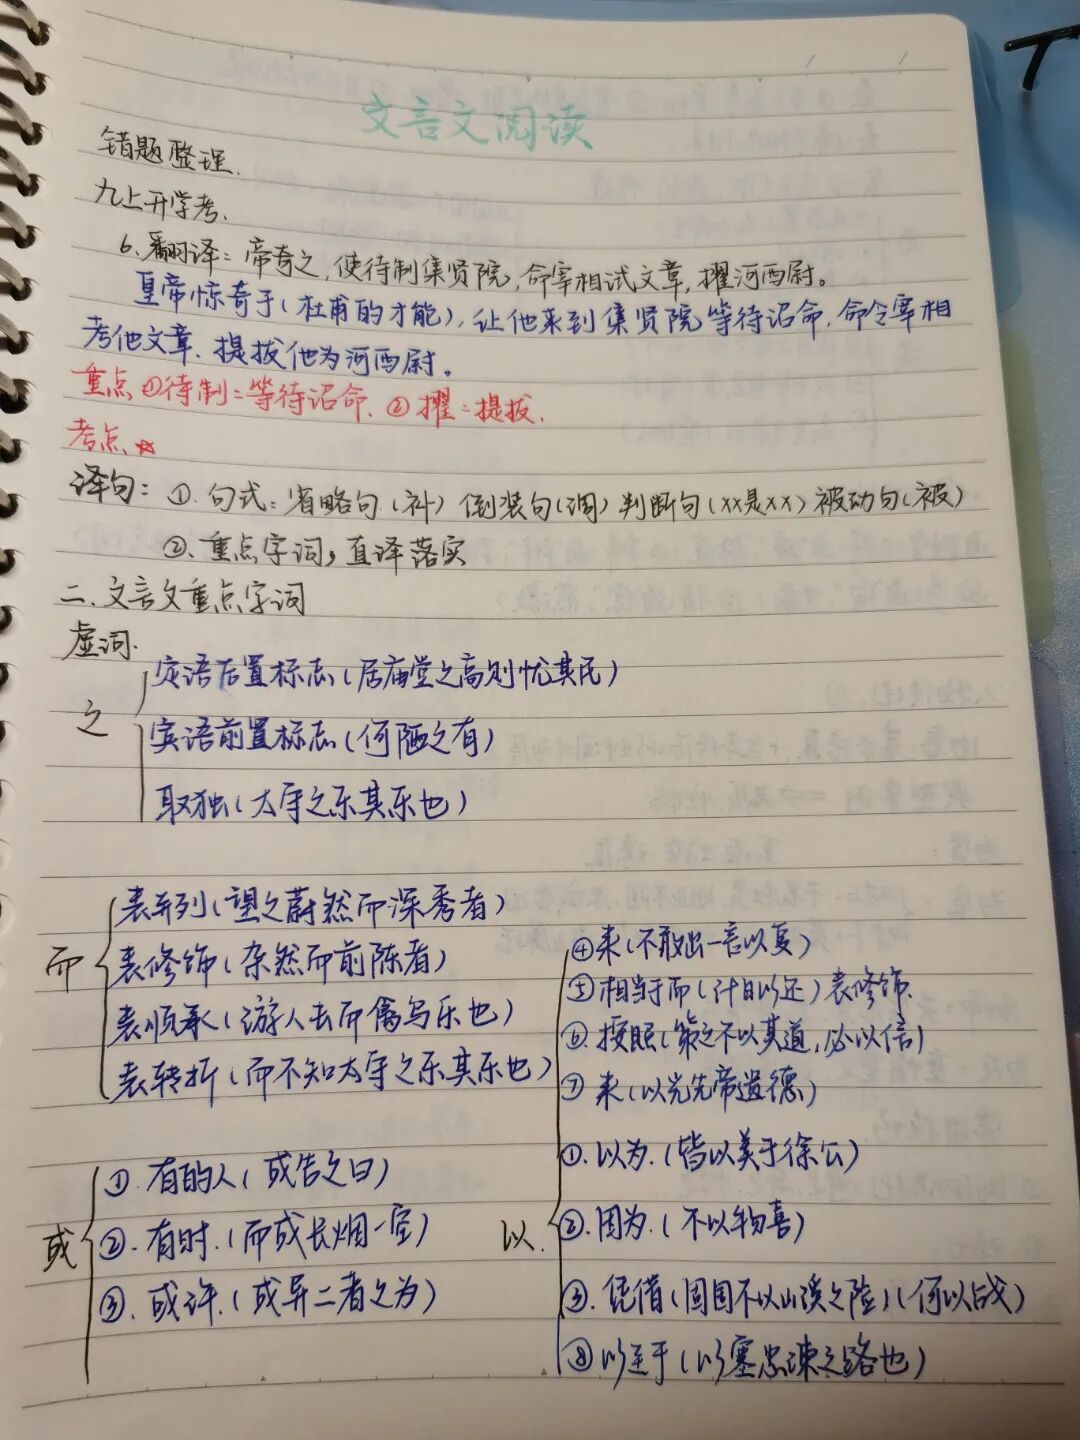 文言文阅读
错题整理.
九上开学考.
6.翻译：帝奇之,使待制集贤院,命宰相试文章,擢河西尉。
皇帝惊奇于(杜甫的才能),让他来到集贤院等待诏命,命令宰相
考他文章、提拔他为河西尉。
重点①待制：等待诏命.②擢：提拔.
考点☆
译句：①.句式：省略句(补)倒装句(调)判断句(xx是xx)被动句(被)
②.重点字词,直译落实
二.文言文重点字词
虚词.
之
定语后置标志(居庙堂之高则忧其民)
宾语前置标志(何陋之有)
取独(太守之乐其乐也)
而
表并列(望之蔚然而深秀者)
表修饰(杂然而前陈者)
表顺承(游人去而禽鸟乐也)
表转折(而不知太守之乐其乐也)
或
①.有的人(或告之曰)
②.有时.(而或长烟一空)
③.或许.(或异二者之为)
④来(不敢出一言以复)
⑤相当于而(计日以还)表修饰.
⑥.按照(策之不以其道,必以信)
⑦来(以光先帝遗德)
以.
①.以为.(皆以美于徐公)
②.因为.(不以物喜)
③.凭借(固国不以山溪之险)(何以战)
⑧以至于(以塞忠谏之路也)